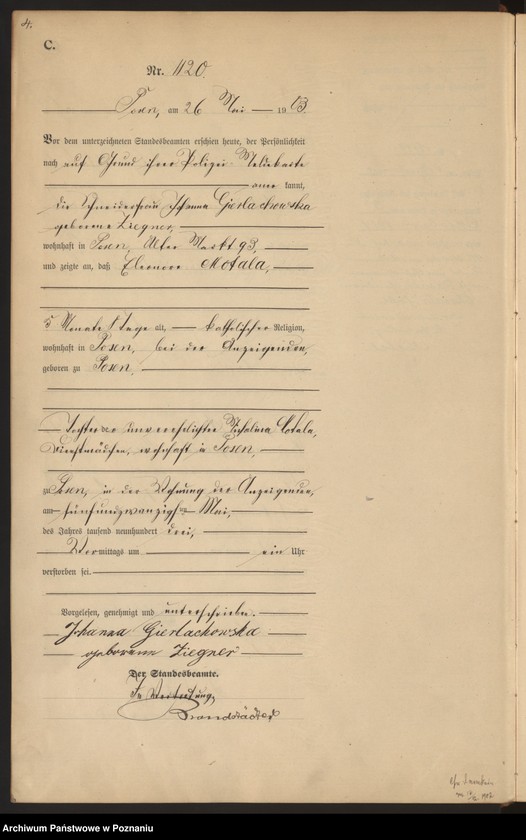 4.
C.
Nr. 1120.
Posen, am 26 Mai 1903.
Vor dem unterzeichneten Standesbeamten erschien heute, der Persönlichkeit
nach auf Grund ihrer Polizei Meldekarte
aner kannt,
die Schneiderfrau Johanna Gierlachowska
geborene Ziegner,
wohnhaft in Posen, Alter Markt 93,
und zeigte an, daß Eleonore Motala,
5 Monate 1 Tage alt, katholischer Religion,
wohnhaft in Posen, bei der Anzeigenden,
geboren zu Posen,
Tochter der unverehelichten Motala,
Dienstmädchen, wohnhaft in Posen,
zu Posen, in der Wohnung der Anzeigenden,
am fünfundzwanzigsten Mai,
des Jahres tausend neunhundert drei,
Vormittags um ein Uhr
verstorben sei.
Vorgelesen, genehmigt und unterschrieben.
Johanna Gierlachowska
geborene Ziegner
Der Standesbeamte.
In Vertretung,
Archiwum Państwowe w Poznaniu